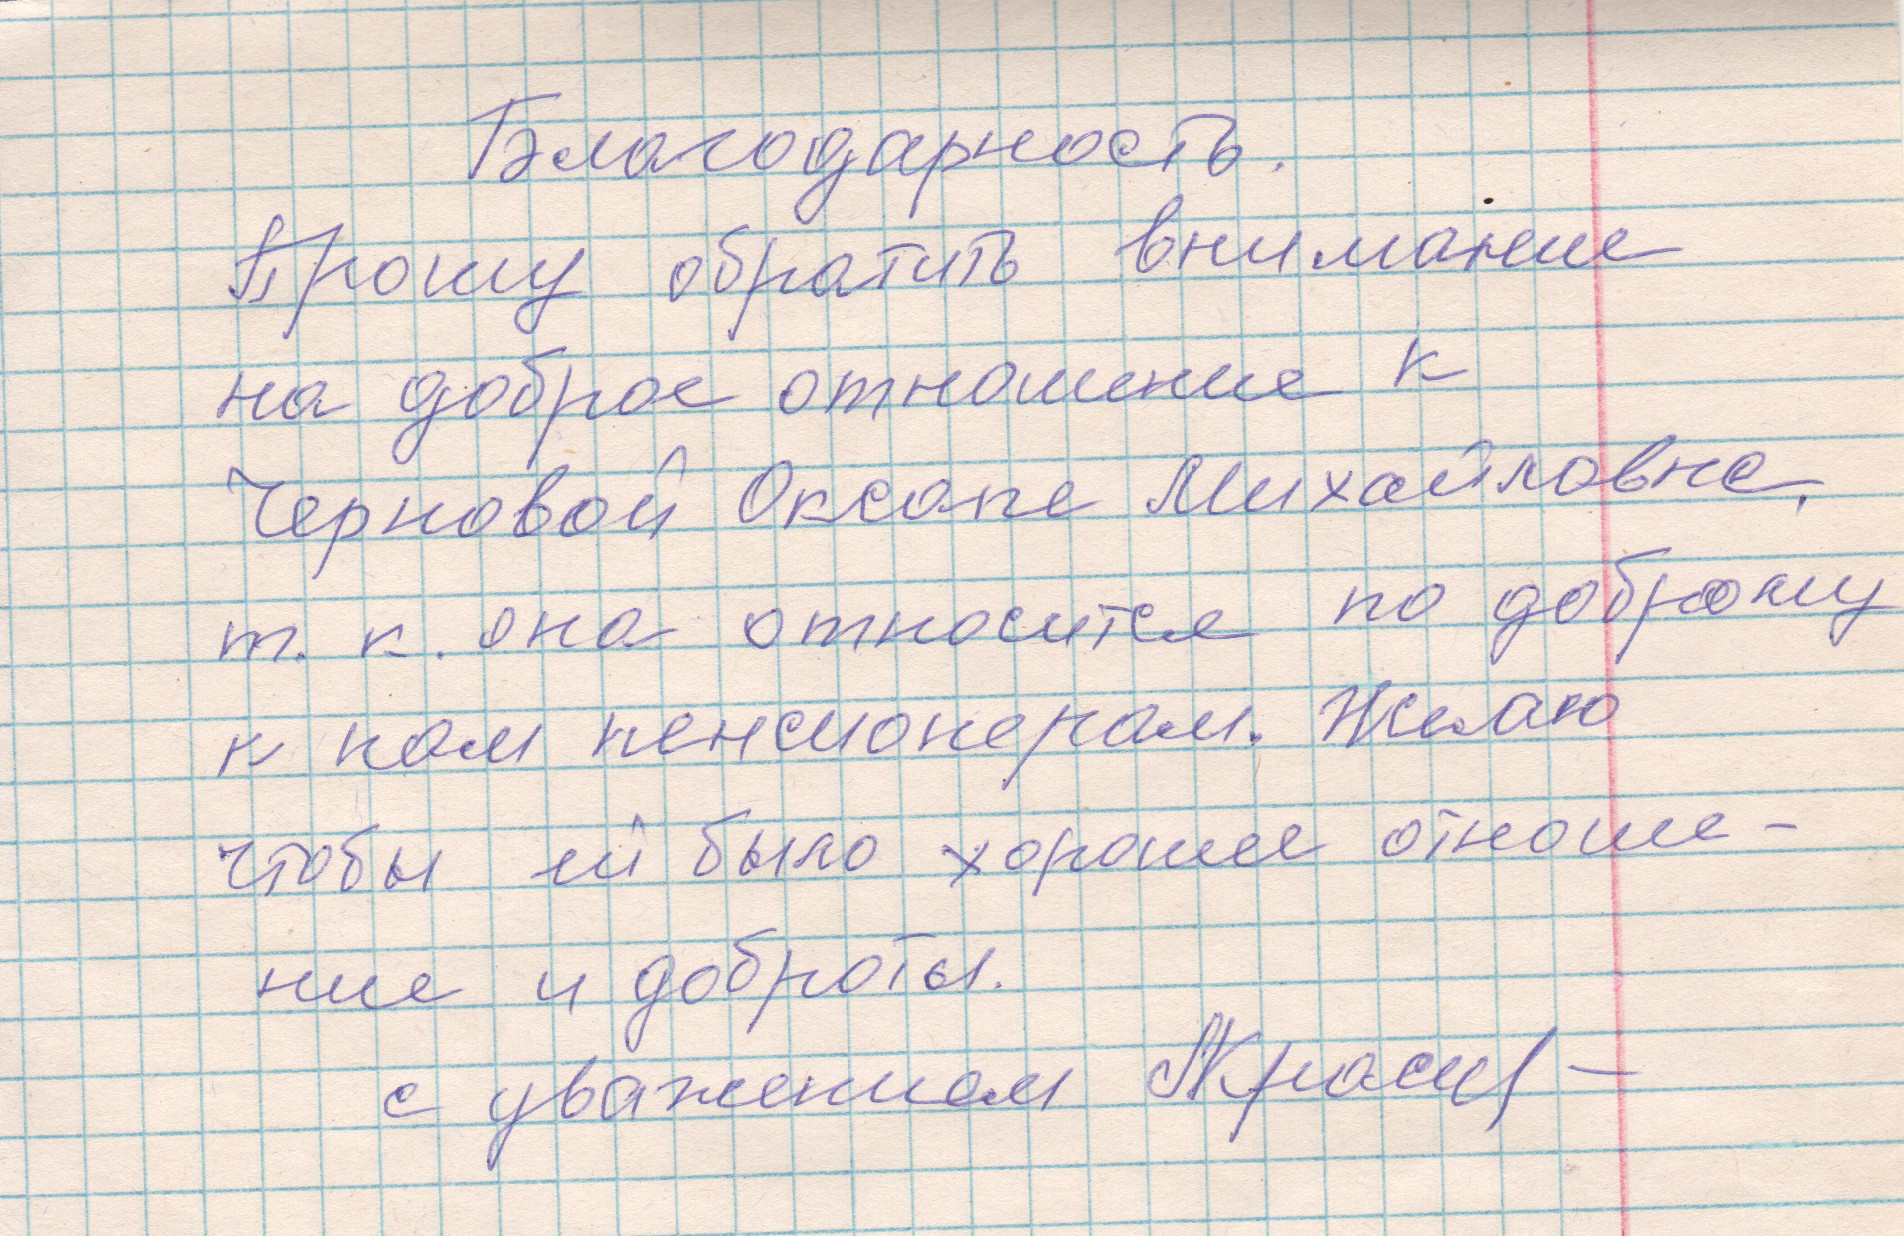 Благодарность.
Прошу обратить внимание
на доброе отношение к
Черновой Оксане Михайловне,
т. к. она относится по доброму
к нам пенсионерам. Желаю
чтобы ей было хорошее отноше-
ние и доброты.
с уважением